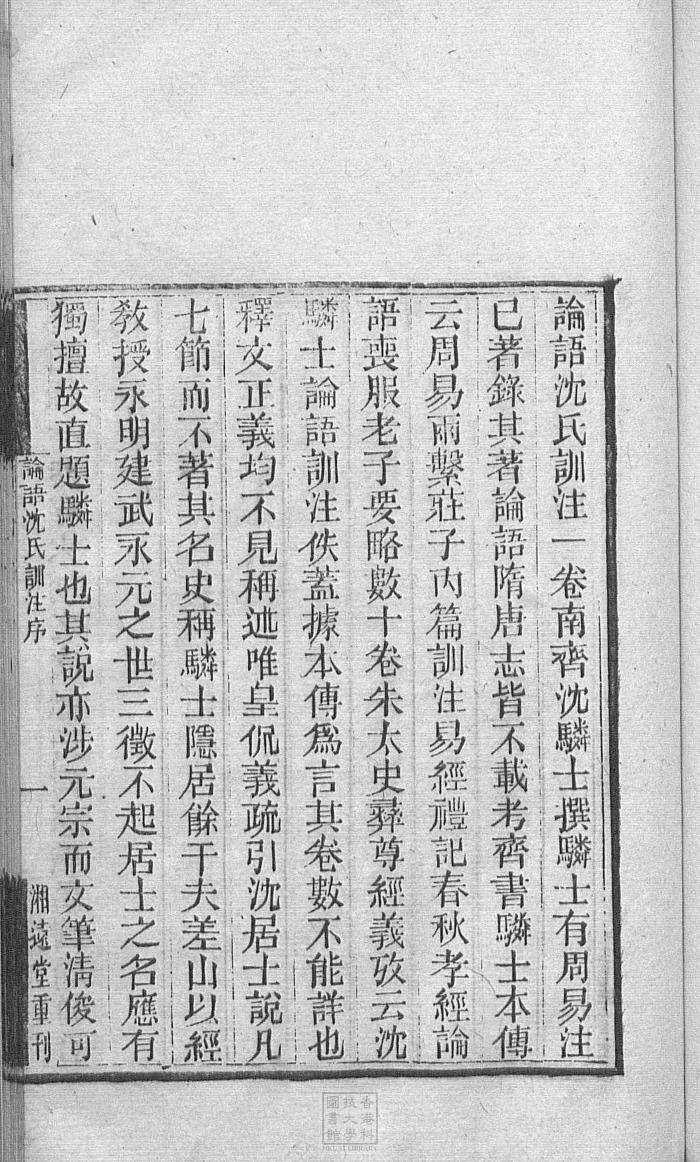 論語沈氏訓注一卷南齊沈驎士撰驎士有周易注
已著錄其著論語隋唐志皆不載考齊書驎士本傳
云周易兩繫莊子內篇訓注易經禮記春秋孝經論
語喪服老子要略數十卷朱太史彝尊經義攷云沈
驎士論語訓注佚蓋據本傳爲言其卷數不能詳也
釋文正義均不見稱述唯皇侃義疏引沈居士說凡
七節而不著其名史稱驎士隱居餘干夫差山以經
敎授永明建武永元之世三徵不起居士之名應有
獨擅故直題驎士也其說亦涉元宗而文筆淸俊可
論語沈氏訓注序
一
湘遠堂重刊
香港科
技大學
圖書館
HKUST LIBRARY